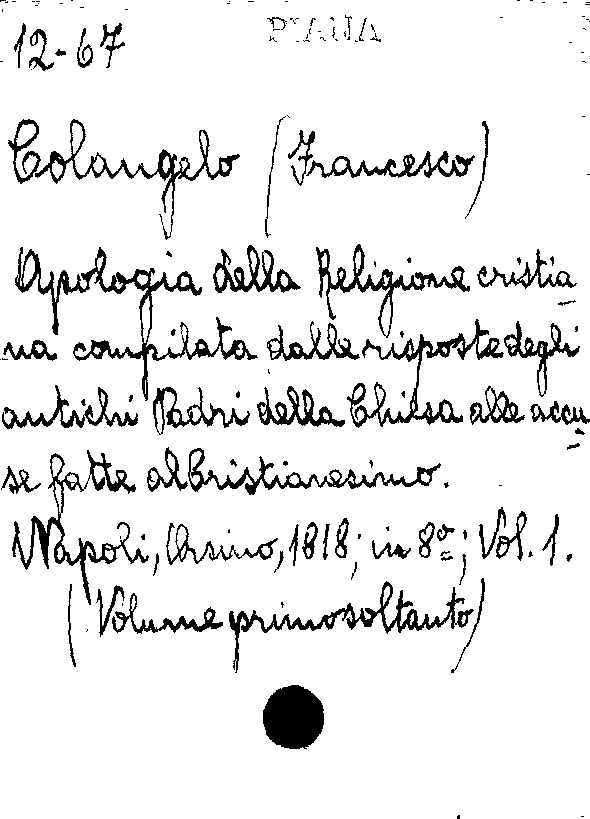 12-67
PIANA
Colangelo (Francesco)
Apologia della Religione cristia
na compilata dalle risposte degli
antichi Padri della Chiesa alle accu
se fatte al Cristianesimo.
Napoli, Orsino, 1818; in 8º; Vol. 1.
(Volume primo soltanto)